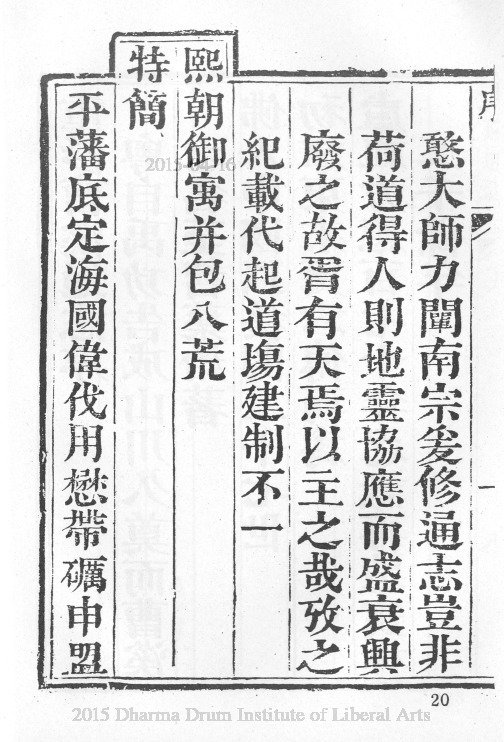 序
憨大師力闡南宗爰修通志豈非
荷道得人則地靈協應而盛衰興
廢之故胥有天焉以主之哉攷之
紀載代起道場建制不一
熙朝御寓并包八荒
特簡
平藩底定海國偉伐用懋帶礪申盟
一
20
2015 Dharma Drum Institute of Liberal Arts